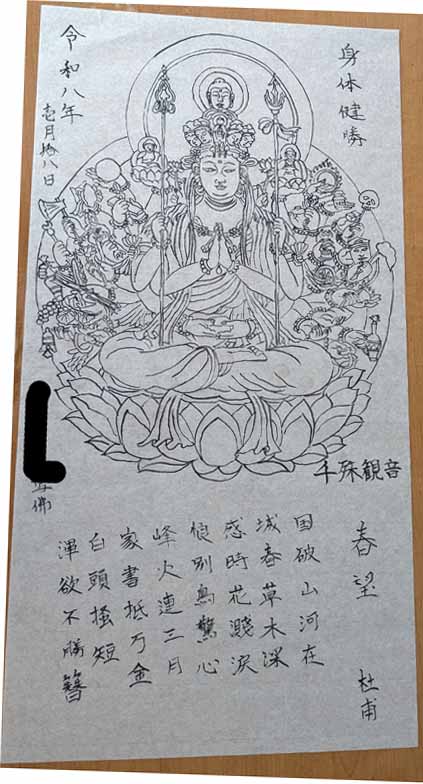 身体健勝
令和八年
壱月拾八日
千殊観音
写佛
春望
杜甫
国破山河在
城春草木深
感時花賤涙
恨別鳥驚心
峰火連三月
家書抵万金
白頭掻短
渾欲不勝簪